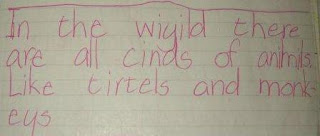 In the wiyild there
are all cinds of animils.
Like tirtels and monk-
eys